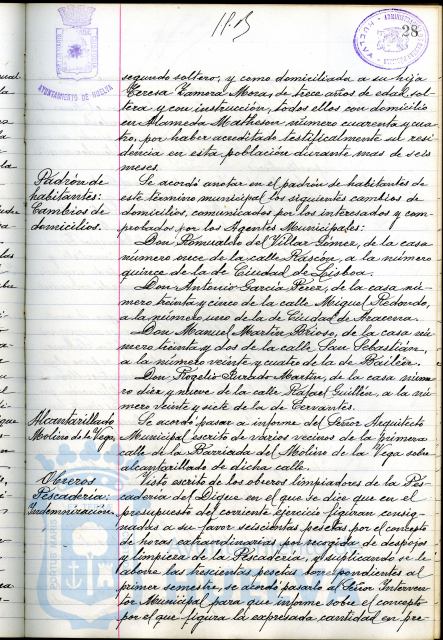 28
AYUNTAMIENTO DE HUELVA
segundo soltero; y como domiciliada a su hija
Teresa Zamora Mora, de trece años de edad, sol-
tera y con instrucción, todos ellos con domicilio
en Alameda Matheson número cuarenta y cua-
tro, por haber acreditado testificalmente su resi-
dencia en esta población durante mas de seis
meses.
Padrón de
habitantes:
Cambios de
domicilios.
Se acordó anotar en el padrón de habitantes de
este término municipal los siguientes cambios de
domicilios, comunicados por los interesados y com-
probados por los Agentes Municipales:
Don Romualdo del Villar Gómez, de la casa
número once de la calle Rascón, a la número
quince de la de Ciudad de Lisboa.
Don Antonio García Pérez, de la casa nú-
mero treinta y cinco de la calle Miguel Redondo,
a la número uno de la de Ciudad de Aracena.
Don Manuel Martín Brioso, de la casa nú-
mero treinta y dos de la calle San Sebastián,
a la número veinte y cuatro de la de Bailén.
Don Rogelio Furtado Martín, de la casa núme-
ro diez y nueve de la calle Rafael Guillén, a la nú-
mero veinte y siete de la de Cervantes.
Alcantarillado
Molino de la Vega.
Se acordó pasar a informe del Señor Arquitecto
Municipal escrito de varios vecinos de la primera
calle de la Barriada del Molino de la Vega sobre
alcantarillado de dicha calle.
Obreros
Pescadería:
Indemnización.
Visto escrito de los obreros limpiadores de la Pes-
cadería del Dique en el que se dice que en el
presupuesto del corriente ejercicio figuran consig-
nadas a su favor seiscientas pesetas por el concepto
de horas extraordinarias por recogida de despojos
y limpieza de la Pescadería, y suplicando se le
abone las trescientas pesetas correspondientes al
primer semestre, se acordó pasarlo al Señor Interven-
tor Municipal para que informe sobre el concepto
por el que figura la expresada cantidad en pre-